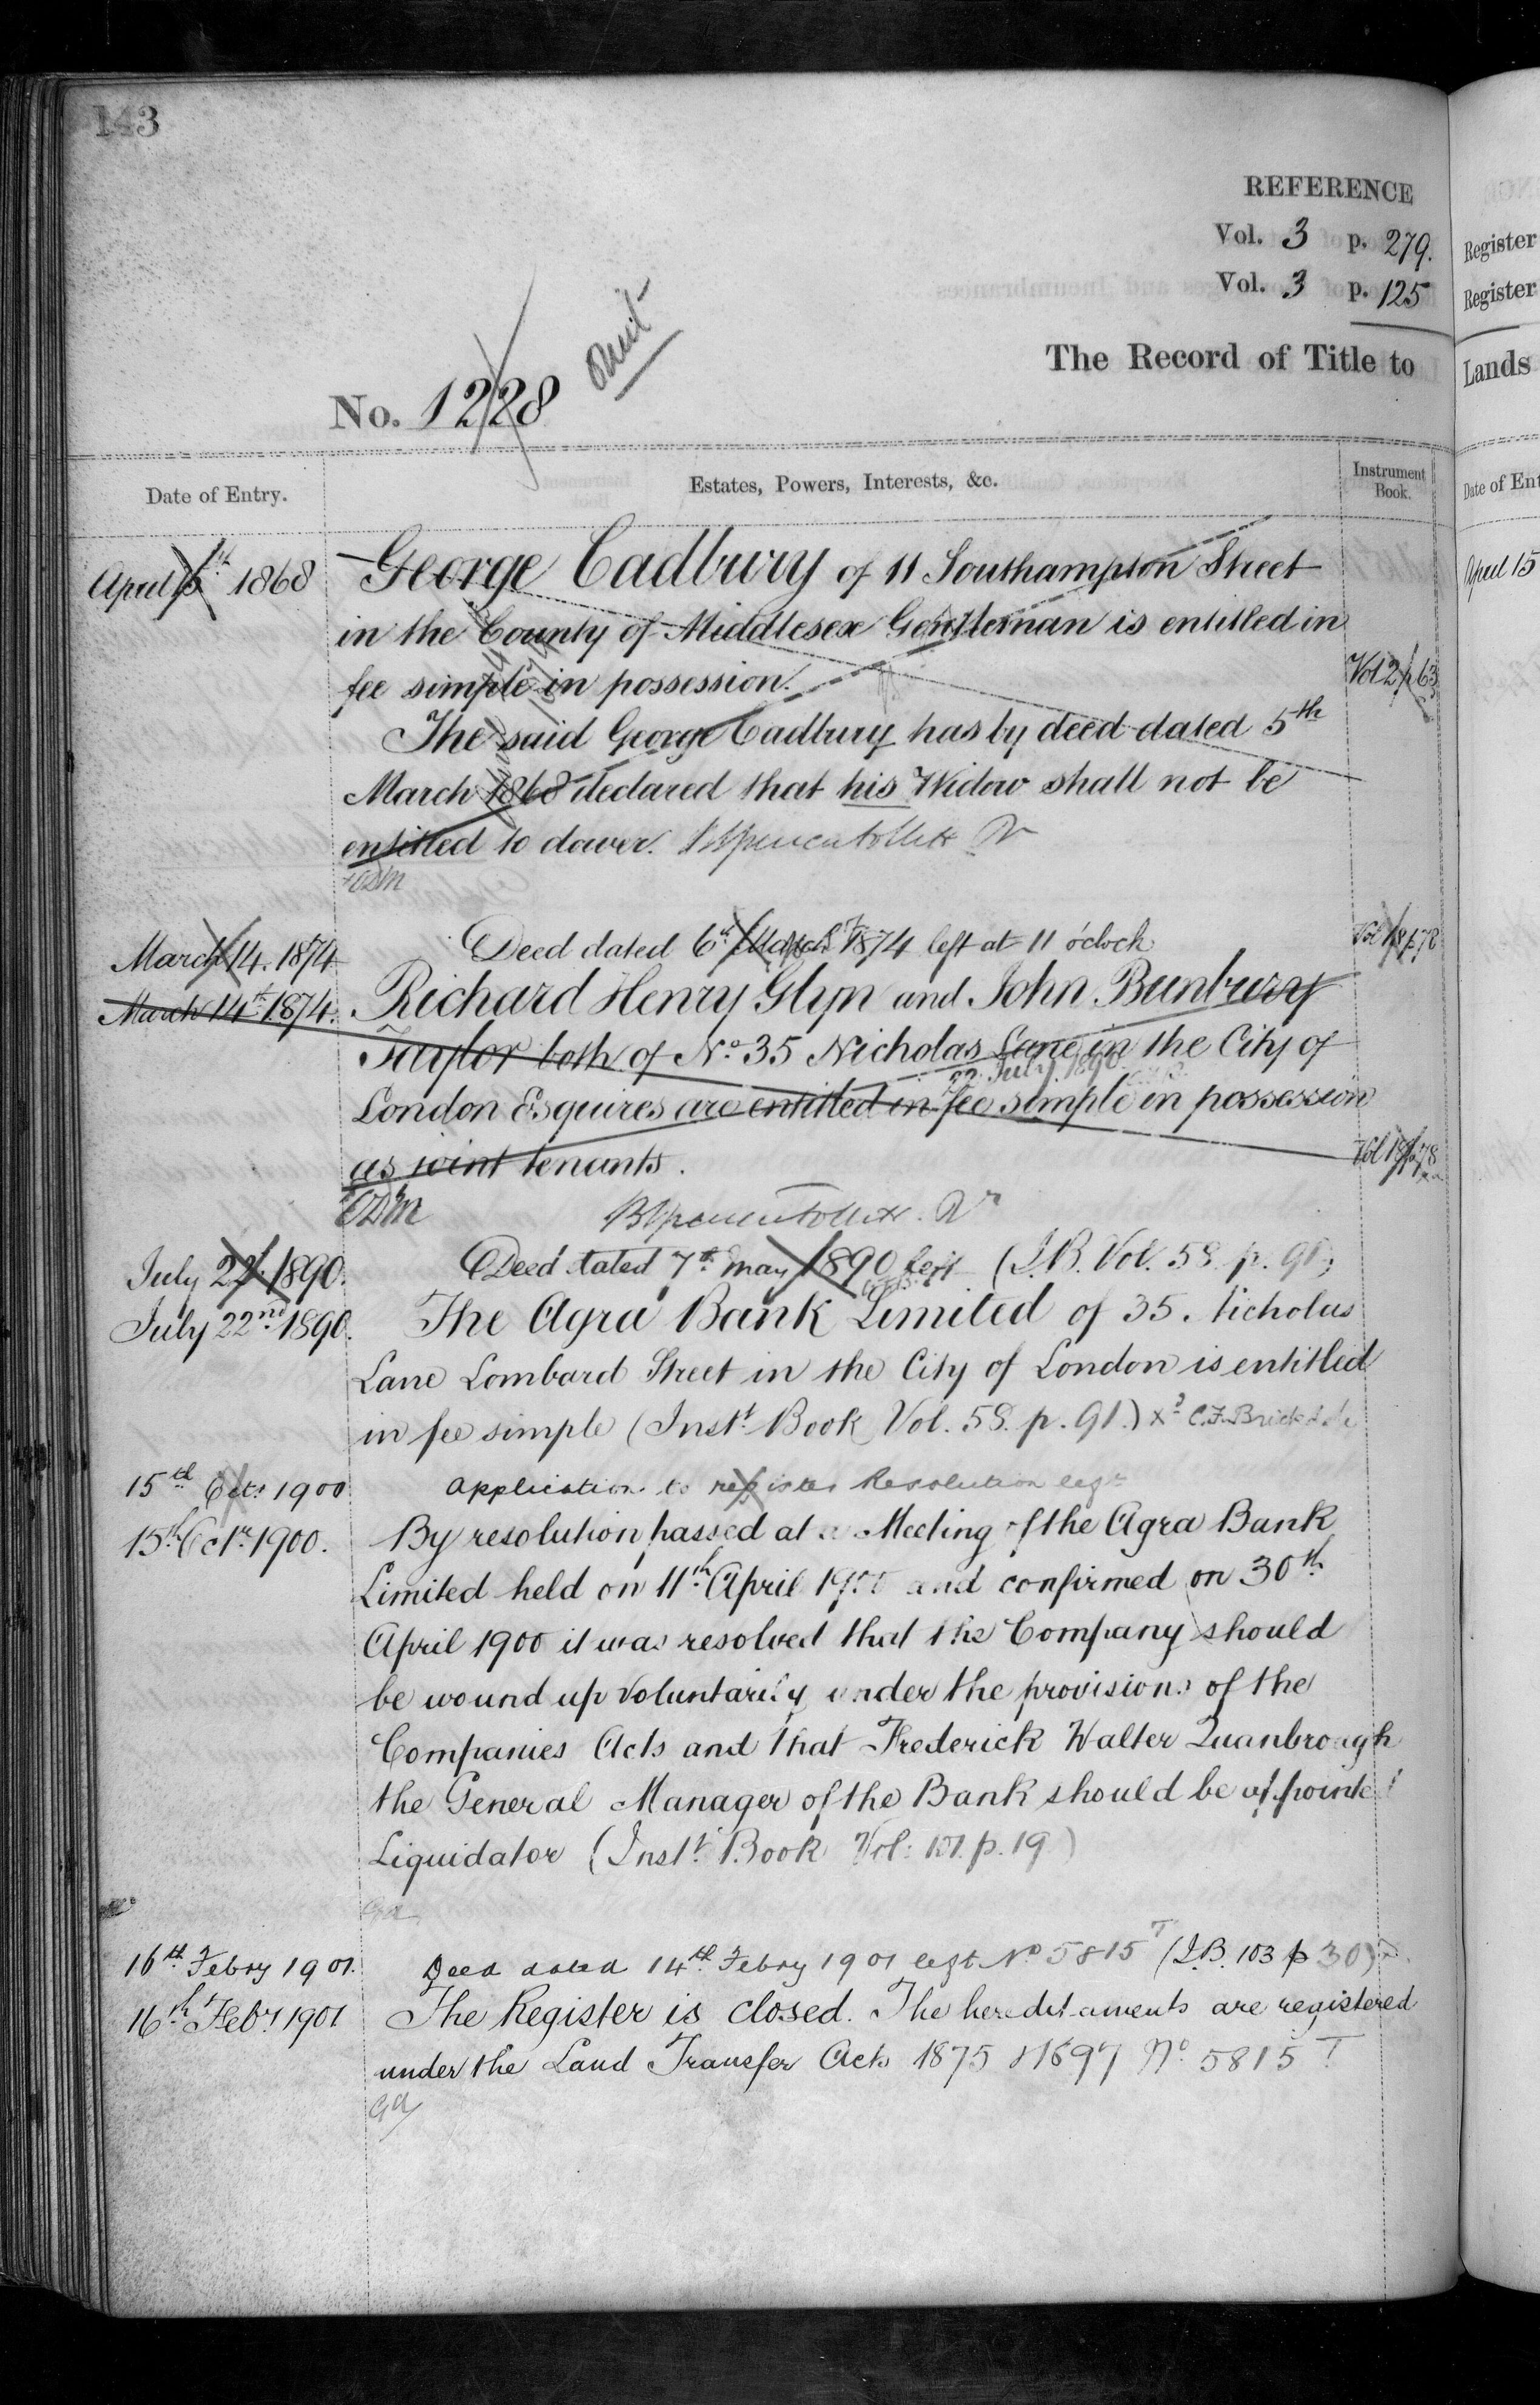 143
REFERENCE
Vol. 3 p. 279.
Vol. 3 p. 125
The Record of Title to
No. 1228
omit
Date of Entry.
Estates, Powers, Interests, &c.
Instrument Book.
April 15th 1868
George Cadbury of 11 Southampton Street
in the County of Middlesex Gentleman is entitled in
fee simple in possession.
Vol 2 p 63
The said George Cadbury has by deed dated 5th
March 1868 declared that his Widow shall not be
entitled to dower.
March 14. 1874
Deed dated 6th March 1874 left at 11 o'clock
Vol 18 p 78
March 14th 1874.
Richard Henry Glyn and John Bunbury
Taylor both of No. 35 Nicholas Lane in the City of
22 July 1890
London Esquires are entitled in fee simple in possession
as joint tenants.
Vol 18 p 78
July 22. 1890.
Deed dated 7th May 1890 left (I.B. Vol. 58. p. 91)
July 22nd 1890.
The Agra Bank Limited of 35. Nicholas
Lane Lombard Street in the City of London is entitled
in fee simple (Instt. Book Vol. 58. p. 91.) C.F. Brickdale
15th Octr 1900
Application to register Resolution left
15th Octr. 1900.
By resolution passed at a Meeting of the Agra Bank
Limited held on 11th April 1900 and confirmed on 30th
April 1900 it was resolved that the Company should
be wound up voluntarily under the provisions of the
Companies Acts and that Frederick Walter Quanbrough
the General Manager of the Bank should be appointed
Liquidator (Instt. Book Vol: 101. p. 19)
16th Febry 1901.
Deed dated 14th Febry 1901 left No 5815 T (I.B. 103 p 30)
16th Feby 1901
The Register is closed. The hereditaments are registered
under the Land Transfer Acts 1875 & 1897 No. 5815 T
Register
Register
Lands
Date of Ent
April 15